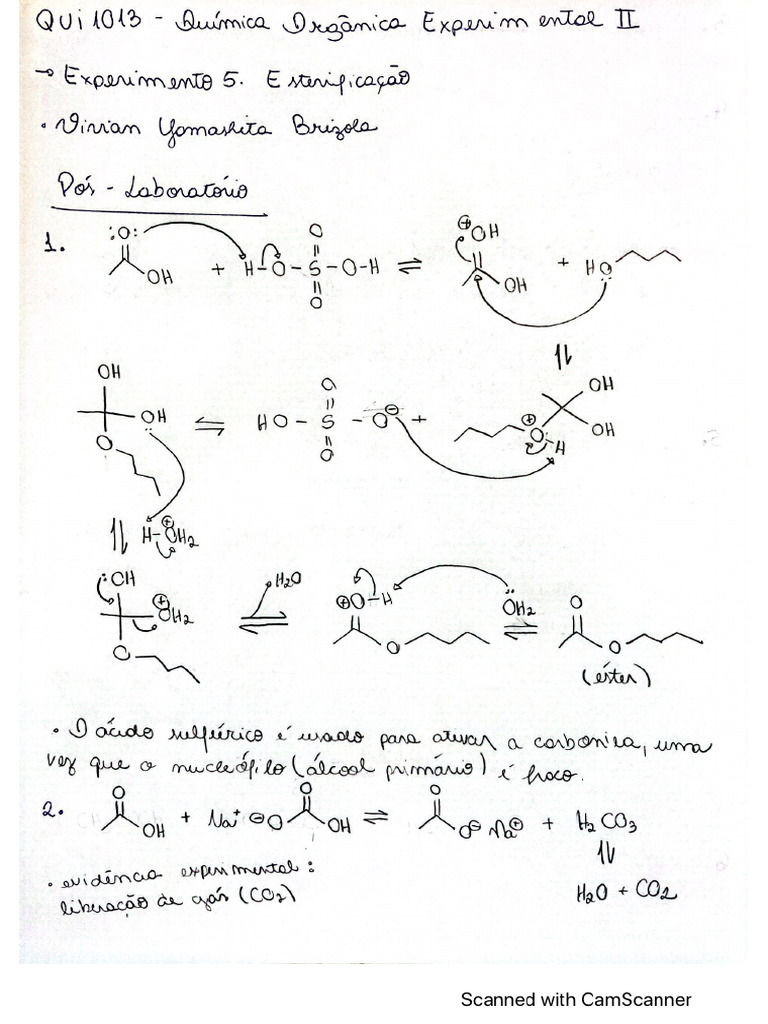 QUI1013 - Química Orgânica Experimental II
→ Experimento 5. Esterificação
• Vivian Yamashita Brizola
Pós - Laboratório
1. :O: OH + H-O-S-O-H ⇌ ⊕OH OH + HO
O O
OH OH O ⇌ HO-S-O⊖ + OH OH ⊕O-H
O O
H-⊕OH2
:OH ⊕OH2 O H2O ⇌ ⊕O-H O OH2 ⇌ O O
(éster)
• O ácido sulfúrico é usado para ativar a carbonila, uma
vez que o nucleófilo (álcool primário) é fraco.
2. O OH + Na+ ⊖O O OH ⇌ O O⊖ Na⊕ + H2CO3
• evidência experimental:
liberação de gás (CO2)
H2O + CO2
Scanned with CamScanner